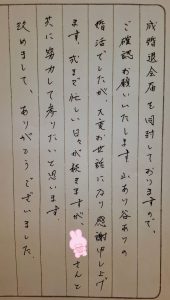 成婚退会届を同封しておりますので、
ご確認お願いいたします。山あり谷ありの
婚活でしたが、大変お世話になり感謝申し上げ
ます。式まで忙しい日々が続きますが さんと
共に努力して参りたいと思います。
改めまして、ありがとうございました。